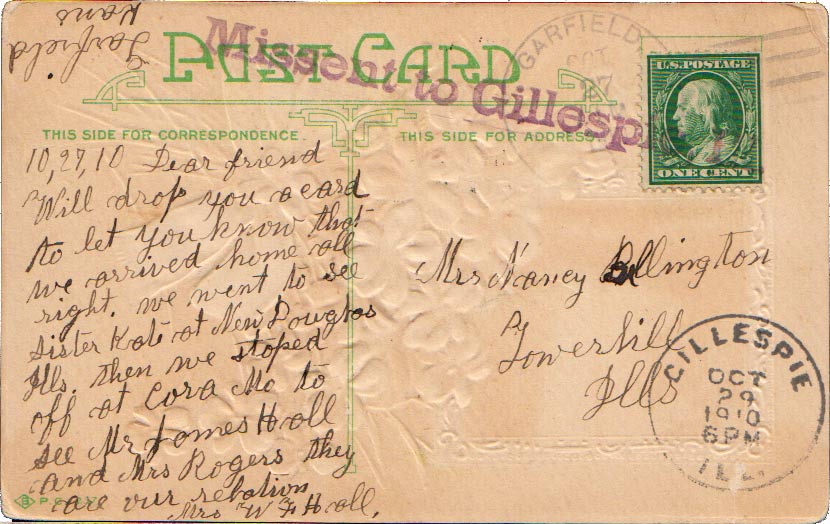 Garfield
Kans
POST CARD
Missent to Gillespie
GARFIELD
OCT
27
U.S. POSTAGE
ONE CENT
THIS SIDE FOR CORRESPONDENCE.
THIS SIDE FOR ADDRESS.
10,27,10 Dear friend
Will drop you a card
to let you know that
we arrived home all
right. we went to see
sister Kate at New Douglas
Ills. then we stoped
off at Cora Mo to
see Mr James Hall
and Mrs Rogers they
are our relation
Mrs W F Hall.
Mrs Nancy Ellington
Towerhill
Ills
GILLESPIE
OCT
29
1910
6 PM
ILL.